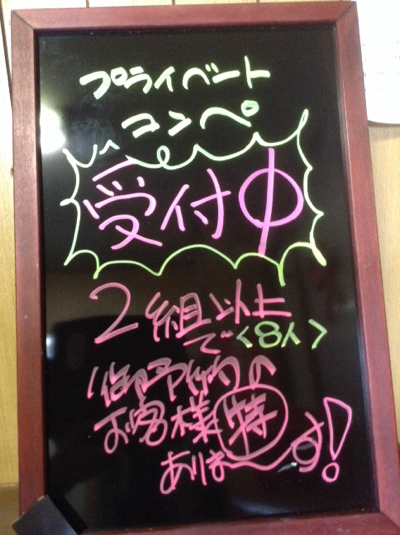 プライベート
コンペ
受付中
2組以上
で<8人>
御予約の
お客様 特
ありま〜す!